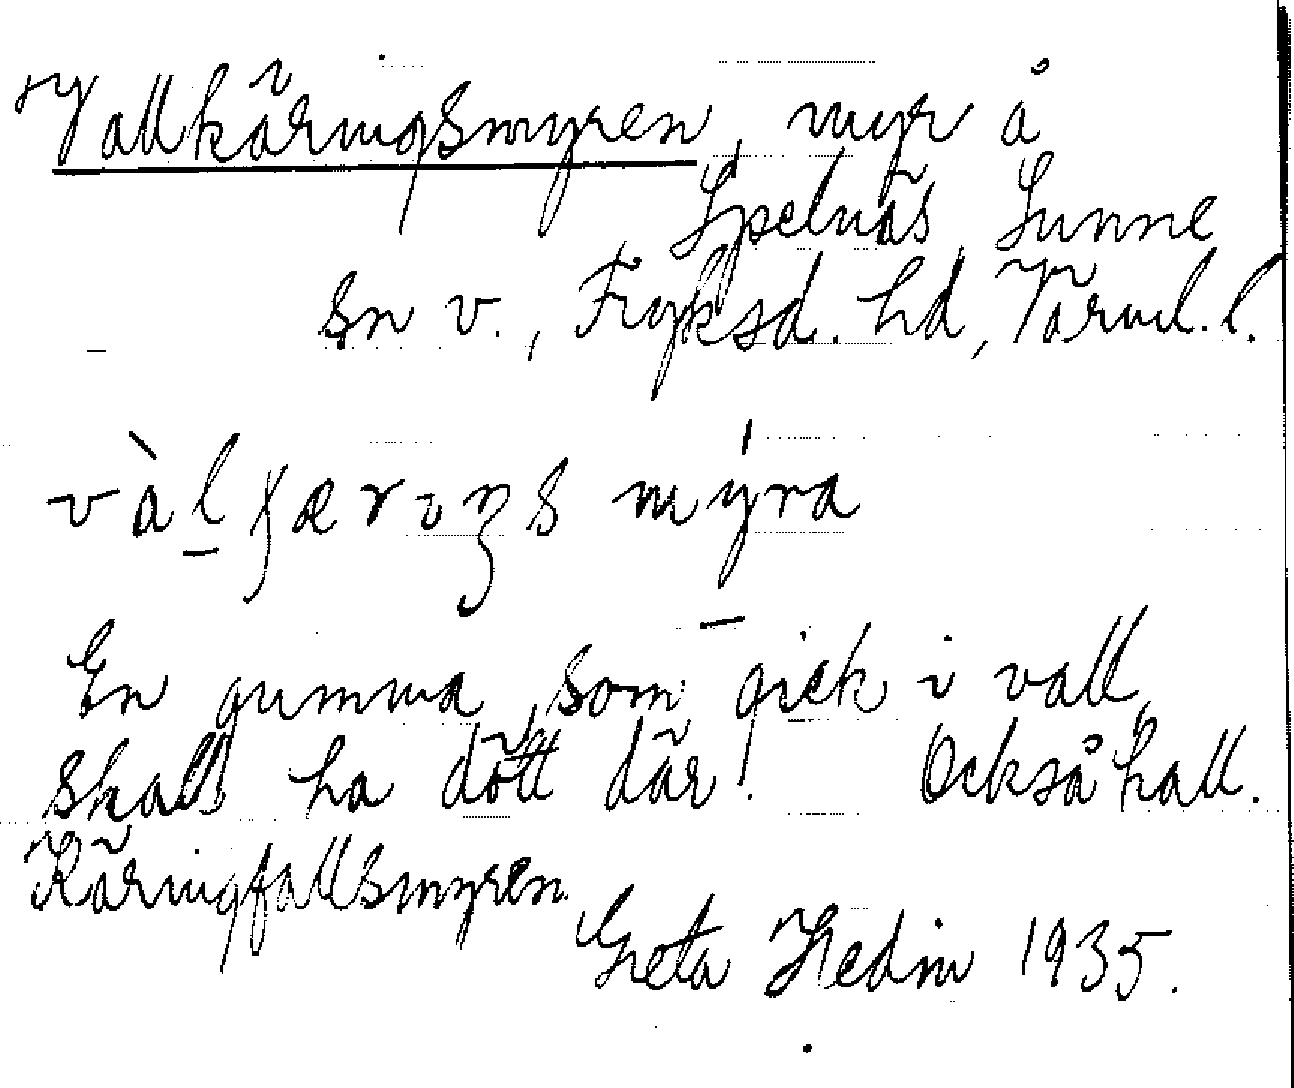 Vallkäringsmyren, myr å
Spelnäs, Sunne
sn v., Fryksd. hd, Värml. l.
mýra
En gumma, som gick i vall,
skall ha dött där! Också kall.
Käringfallsmyren.
Greta Hedin 1935.